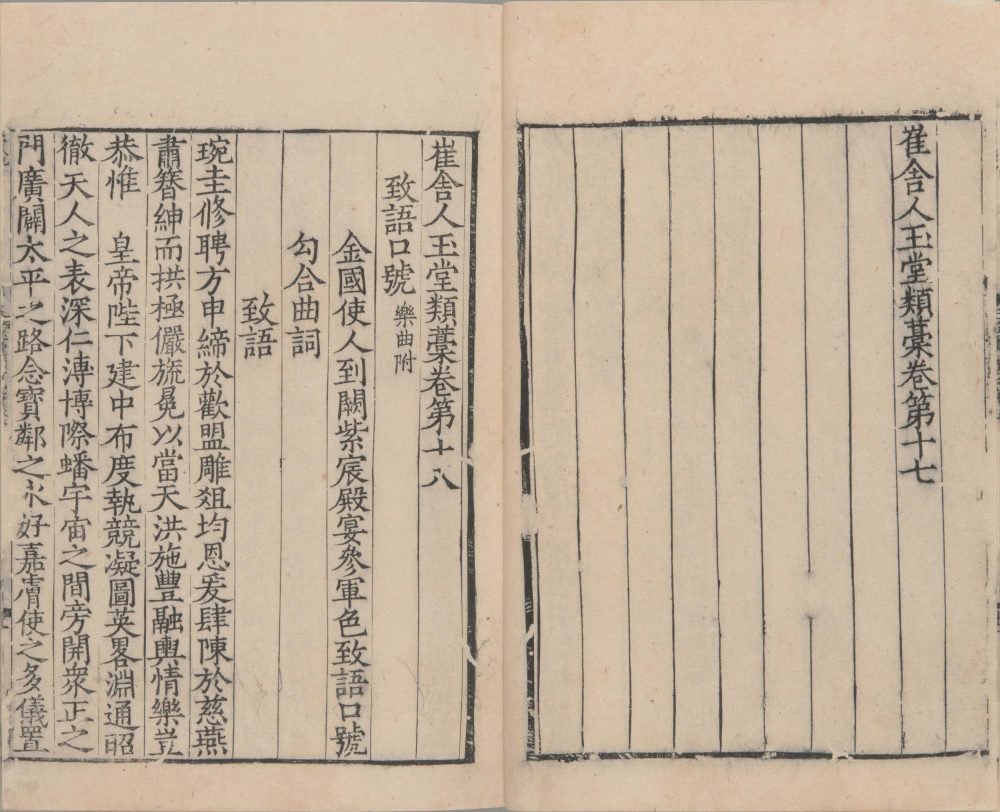 崔舍人玉堂類藁卷第十七
崔舍人玉堂類藁卷第十八
致語口號 樂曲附
金國使人到闕紫宸殿宴參軍色致語口號
勾合曲詞
致語
琬圭修聘方申締於歡盟雕俎均恩爰肆陳於慈燕
肅簪紳而拱極儼旒冕以當天洪施豐融輿情樂豈
恭惟 皇帝陛下建中布度執競凝圖英畧淵通昭
徹天人之表深仁溥博際蟠宇宙之間旁開衆正之
門廣闢太平之路念寶鄰之永好嘉膚使之多儀置